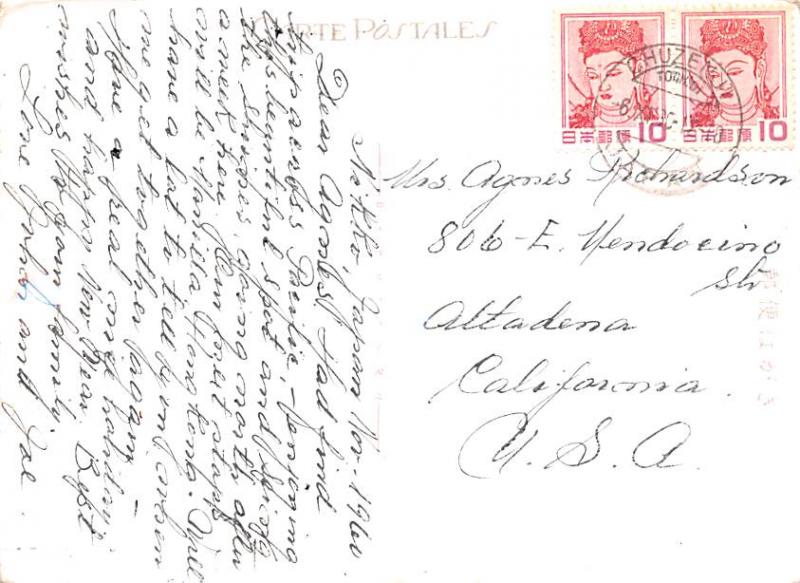 CARTE POSTALES
日本郵便 10
日本郵便 10
CHUZENJI
TOCHIGI
Nikko, Japan Nov- 1960
Dear Agnes! Had fine
trip across Pacific, - enjoying
this beautiful spot and
the shrines, going north after
a week here. Our next stops
will be Manila, Hongkong. Will
have a lot to tell you when
we get together again -
Have a real nice holiday
and happy New Year. Best
wishes to your family.
Love and Joe.
Mrs. Agnes Richardson
806-E. Mendocino
str
Altadena
California
U. S. A.
郵便はがき